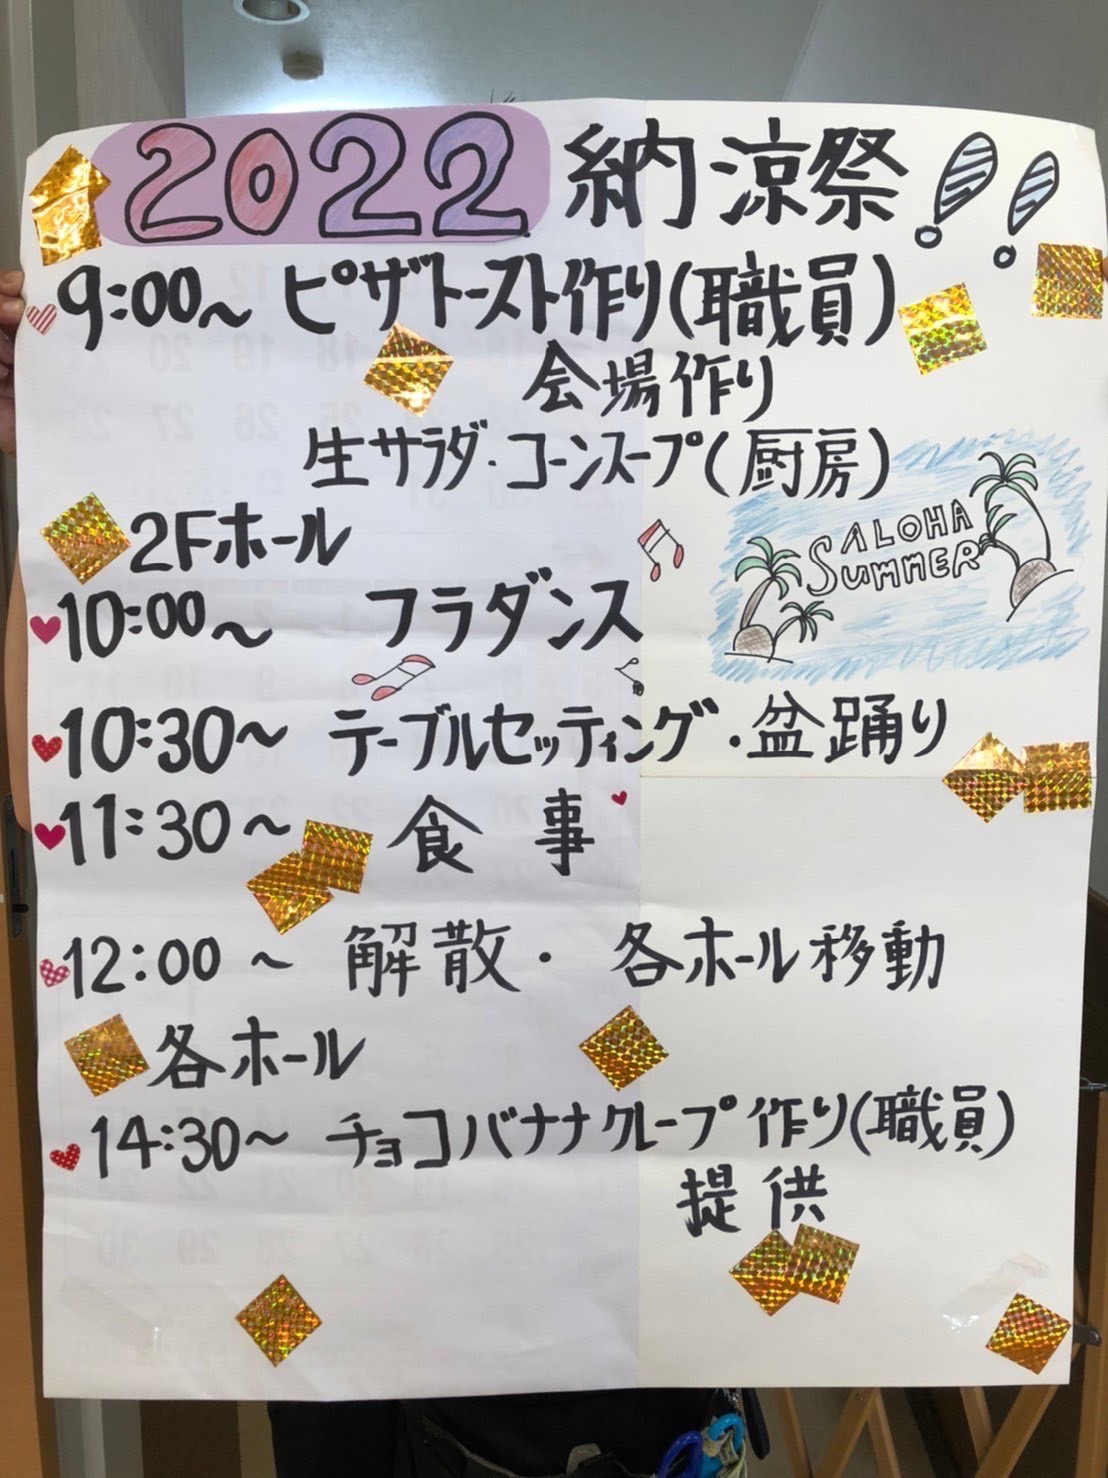 2022 納涼祭!!
9:00〜 ピザトースト作り(職員)
会場作り
生サラダ・コーンスープ(厨房)
ALOHA
SUMMER
2Fホール
10:00〜 フラダンス
10:30〜 テーブルセッティング・盆踊り
11:30〜 食事
12:00〜 解散・各ホール移動
各ホール
14:30〜 チョコバナナクレープ作り(職員)
提供